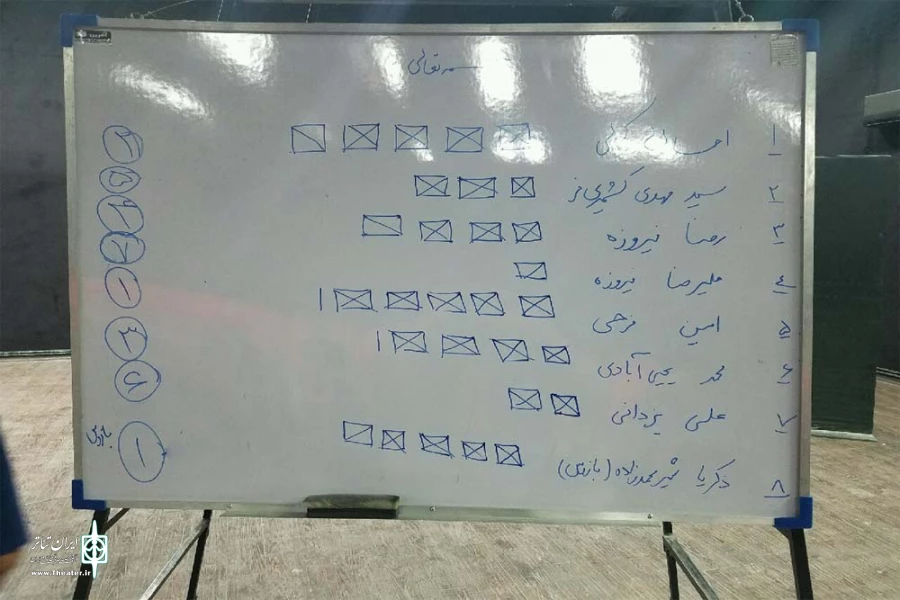 بسمه تعالی
۱ احسان
۲ سید مهدی کشمیری فر
۳ رضا فیروزه
٤ علیرضا فیروزه
۵ امین فرخی
٦ محمد یحیی آبادی
۷ علی یزدانی
۸ ذکریا شیرمحمدزاده (بازرس)
بازرس
ایران تئاتر
www.Theater.ir